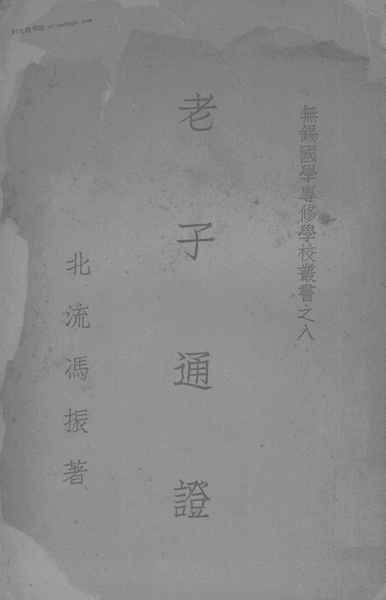 無錫國學專修學校叢書之八
老子通證
北流馮振著